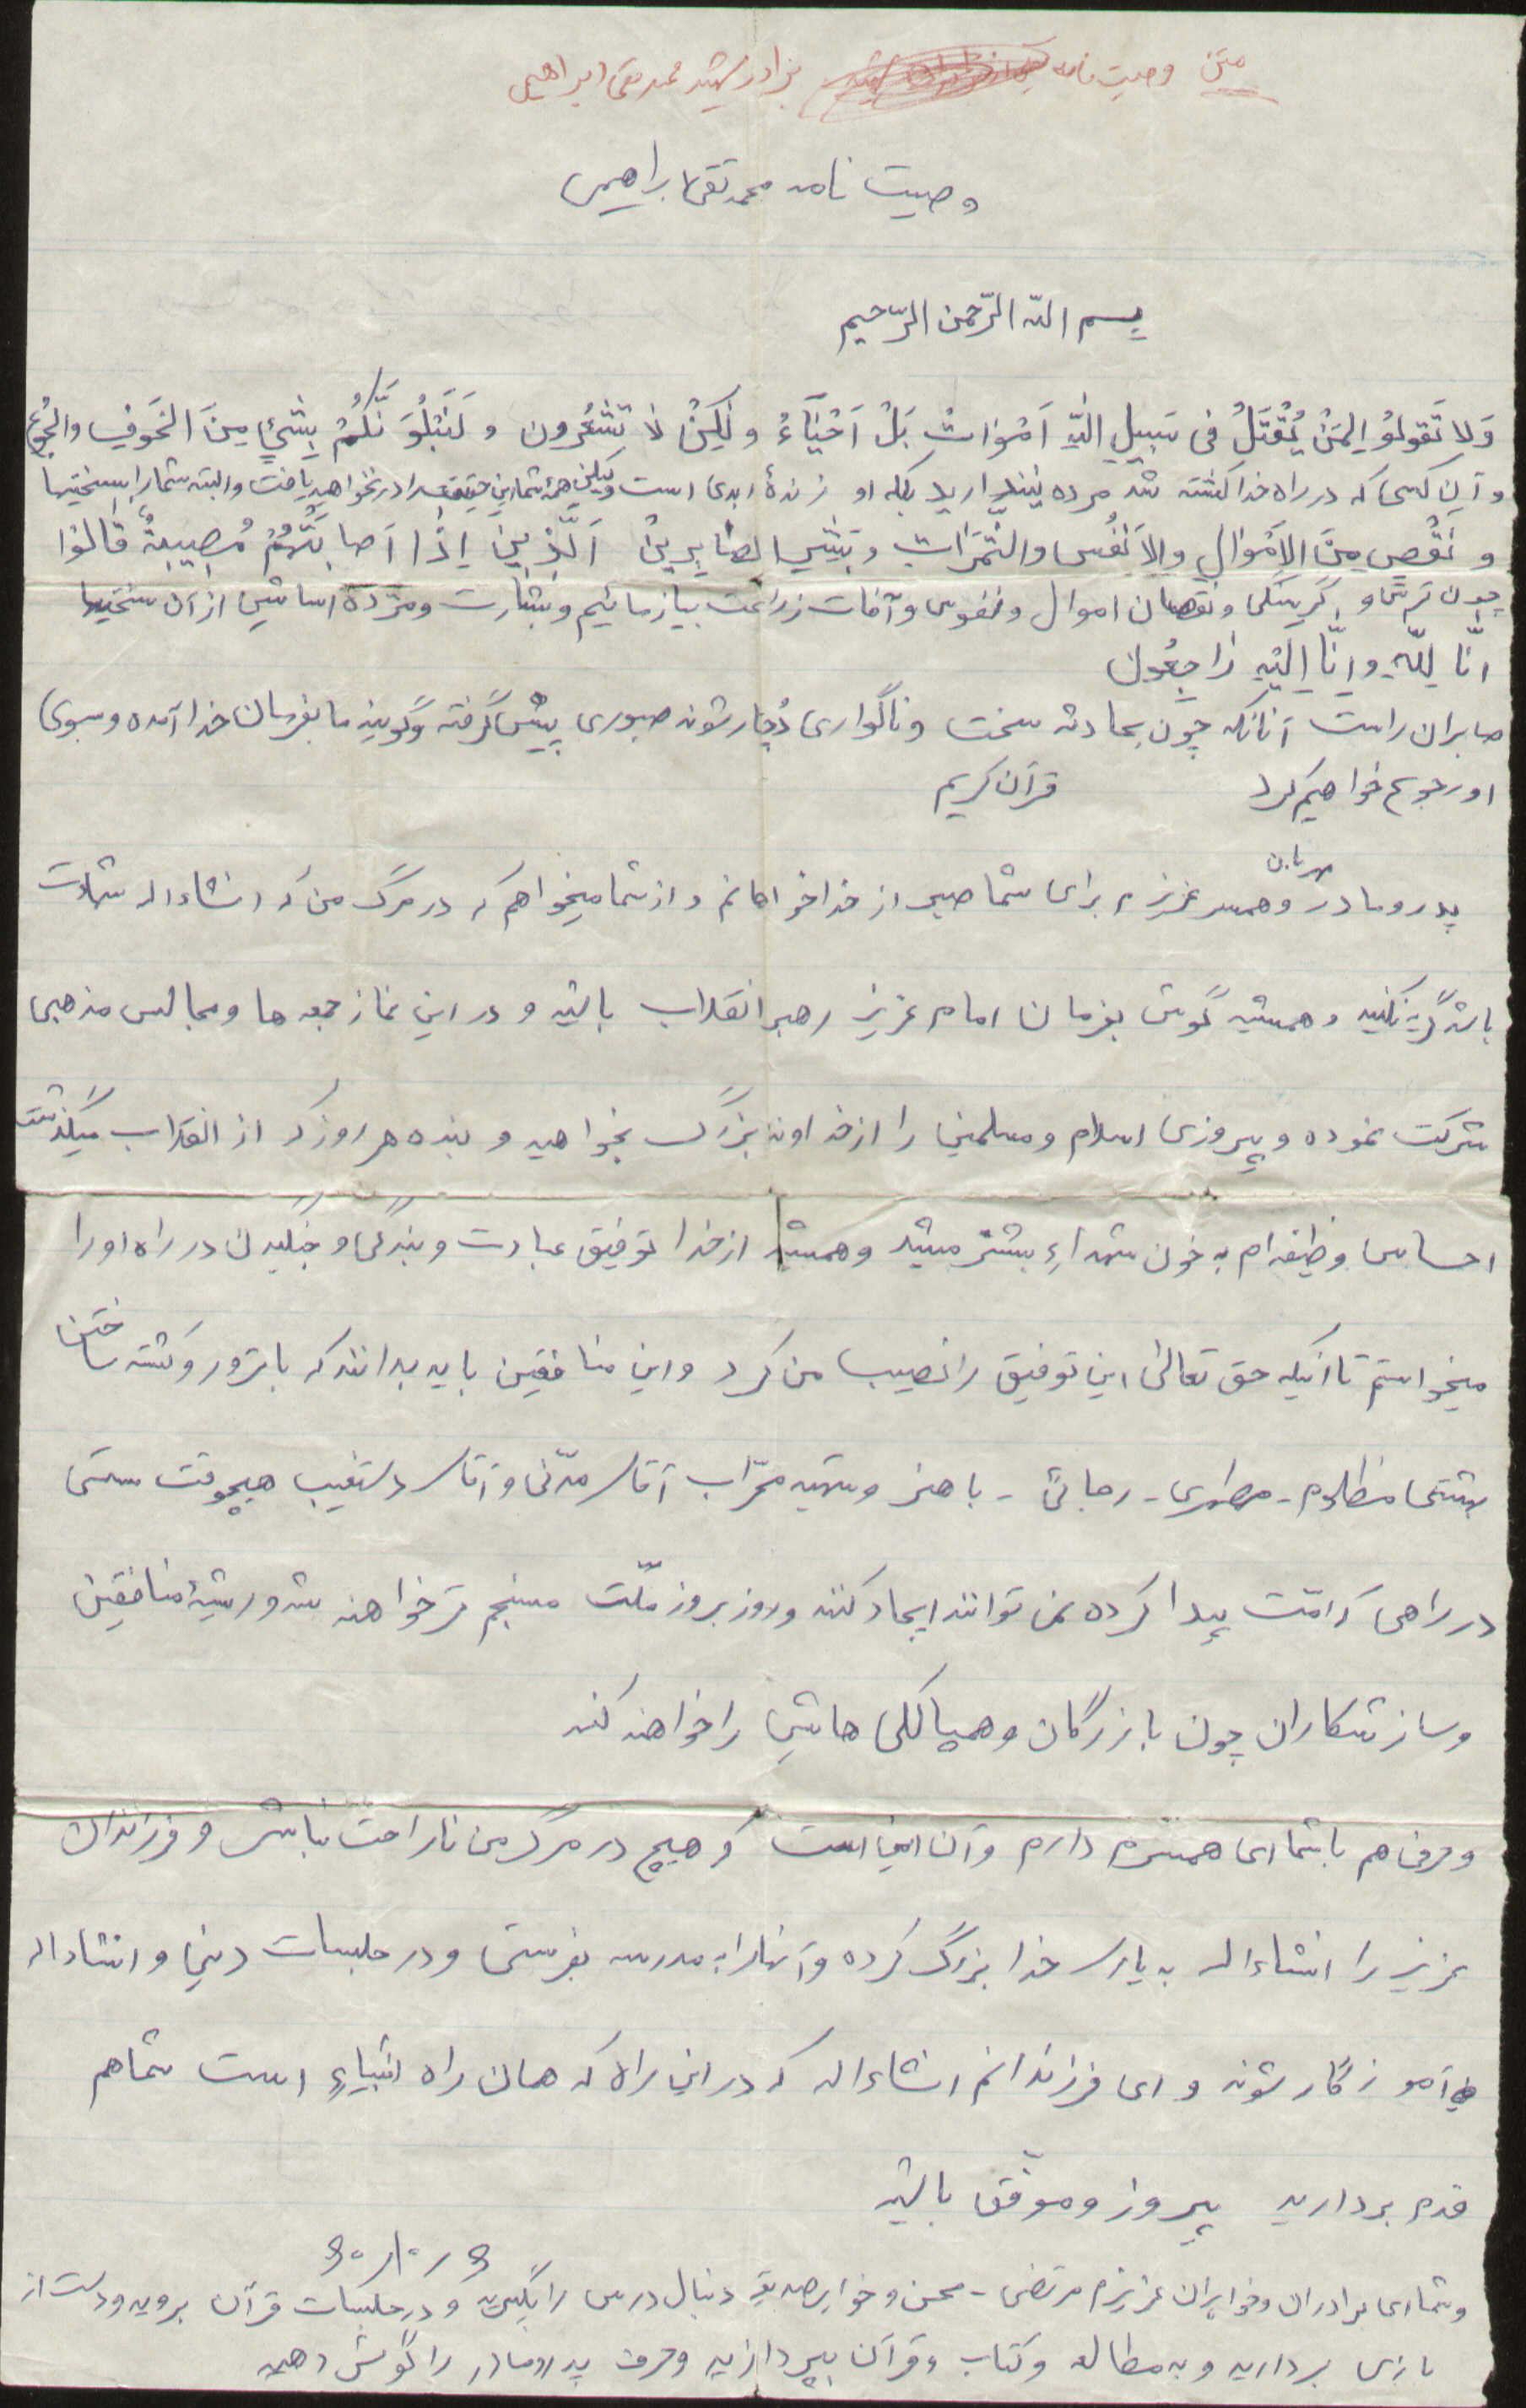 متن وصیت نامه برادر شهید محمد تقی ابراهیمی
وصیت نامه محمد تقی ابراهیمی
بسم اللّه الرّحمن الرّحیم
وَلا تَقولوُ الِمَنْ یُقْتَلُ فی سَبیلِ اللّهِ اَمْواتْ بَلْ اَحْیٰاءُ و لٰکِنْ لا تَشْعُرون و لَنَبْلُوَنَّکُمْ بِشَئٍ مِنَ الخَوفِ والجُوعِ
و آن کسی که در راه خدا کشته شد مرده نپندارید بلکه او زندهٔ ابدی است ولیکن همهٔ شما این حقیقت را در نخواهید یافت و البته شما را بسختیها
و نَقْصٍ مِنَ الاَمْوالِ والاَنْفُسِ والثَمَراتِ وبَشِّرِ الصٰابِرینْ اَلَّذینَ اِذٰا اَصابَتْهُمْ مُصیبةٌ قٰالوُا
چون ترس و گرسنگی و نقصان اموال و نفوس و آفات زراعت بیازمائیم و بشارت و مژده آسایش از آن سختیها
انّا لِلّهِ و اِنّا اِلَیْهِ رٰاجِعُون
صابران راست آنانکه چون بحادثه سخت و ناگواری دُچار شوند صبوری پیش گرفته و گویند ما بفرمان خدا آمده و بسوی
او رجوع خواهیم کرد قرآن کریم
پدر و مادر مهربان و همسر عزیزم برای شما صبر از خدا خواهانم و از شما میخواهم که در مرگ من که انشاءاله شهادت
باشد گریه نکنید و همیشه گوش بفرمان امام عزیز رهبر انقلاب باشید و در این نماز جمعه ها و مجالس مذهبی
شرکت نموده و پیروزی اسلام و مسلمین را از خداوند بزرگ بخواهید و بنده هر روز که از انقلاب میگذشت
احساس وظیفه ام به خون شهداءِ بیشتر میشد و همیشه از خدا توفیق عبادت و بندگی و جنگیدن در راه او را
میخواستم تا اینکه حق تعالیٰ این توفیق را نصیب من کرد و این منافقین باید بدانند که با ترور و کشته ساختن
بهشتی مظلوم - مطهری - رجائی - باهنر و شهید محرّاب آقای مدّنی و آقای دستغیب هیچوقت سستی
در راهی که امّت پیدا کرده نمی توانند ایجاد کنند و روز بروز ملّت منسجم تر خواهند شد و ریشهٔ منافقین
و سازشکاران چون بازرگان و همپالکی هایش را خواهند کند
و حرفی هم با شما ای همسرم دارم و آن این است که هیچ در مرگ من ناراحت نباشی و فرزندان
عزیز را انشاءاله به یاری خدا بزرگ کرده و آنها را به مدرسه بفرستی و در جلسات دینی و انشاءاله
آموزگار شوند و ای فرزندانم انشاءاله که در این راه که همان راه انبیاءِ است شما هم
قدم بردارید پیروز و موفّق باشید
و شما ای برادران و خواهران عزیزم مرتضی - محسن و خواهر صدیقه دنبال درس را بگیرید و در جلسات قرآن بروید و دست از
بازی بردارید و به مطالعه و کتاب و قرآن بپردازید و حرف پدر و مادر را گوش دهید